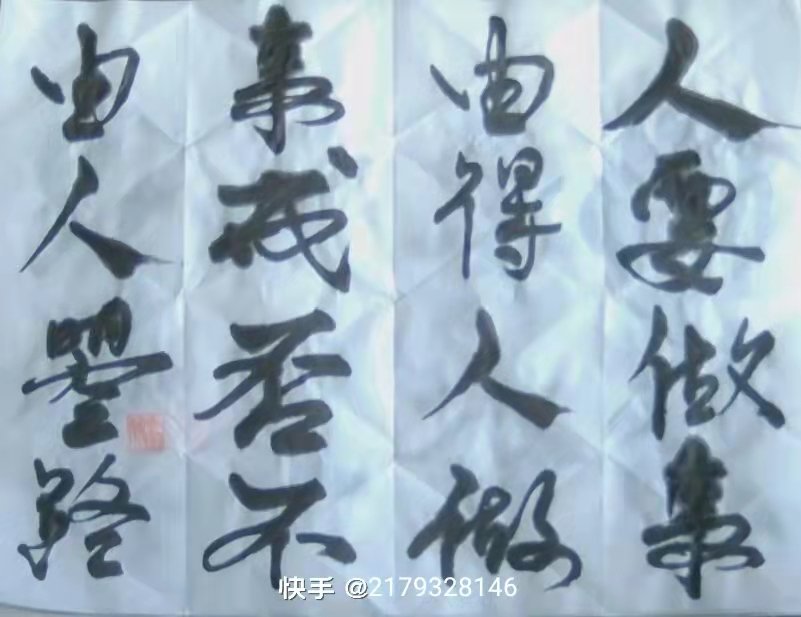 人要做事
由得人做
事成否不
由人
路
快手 @2179328146